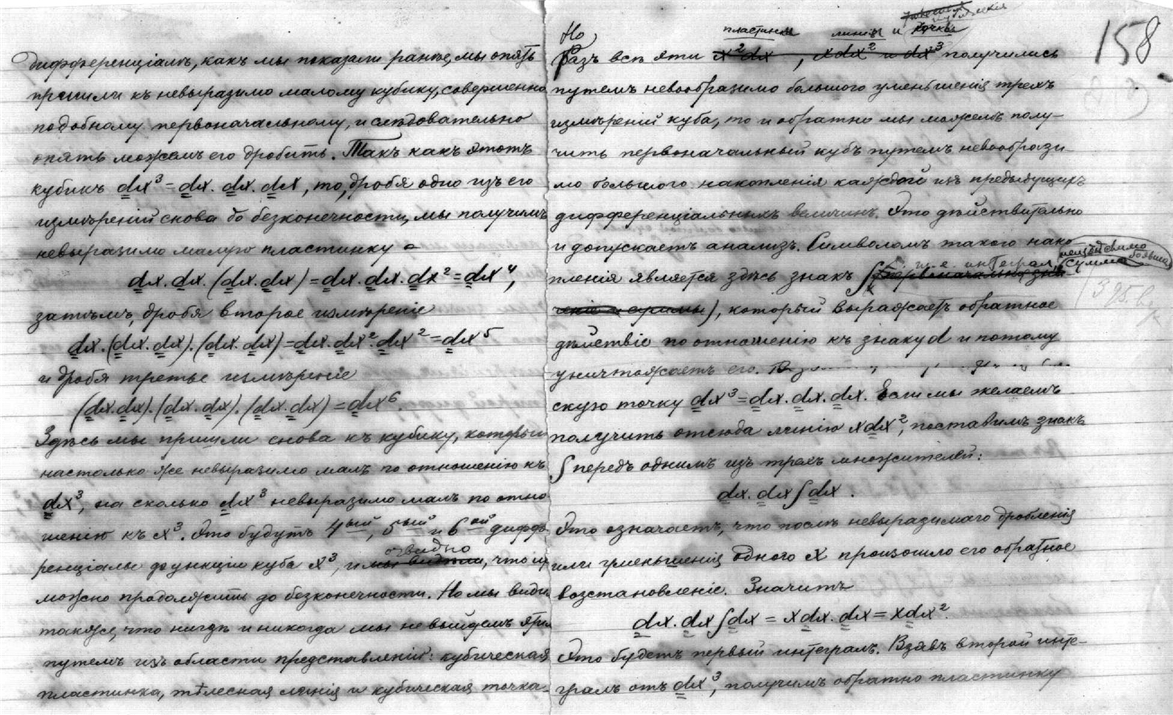 дифференціалъ, какъ мы показали ранѣе, мы опять
пришли къ невыразимо малому кубику, совершенно
подобному первоначальному, и слѣдовательно
опять можемъ его дробить. Такъ какъ этотъ
кубикъ dx³ = dx. dx. dx, то, дробя одно изъ его
измѣреній снова до безконечности, мы получимъ
невыразимо малую пластинку =
dx. dx. (dx. dx) = dx. dx. dx² = dx⁴,
затѣмъ, дробя второе измѣреніе
dx. (dx. dx). (dx. dx) = dx. dx². dx² = dx⁵
и дробя третье измѣреніе
(dx. dx). (dx. dx). (dx. dx) = dx⁶.
Здѣсь мы пришли снова къ кубику, который
настолько же невыразимо малъ по отношенію къ
dx³, на сколько dx³ невыразимо малъ по отно
шенію къ x³. Это будутъ 4ый, 5ый и 6ой диффе
ренціалы функціи куба x³, и мы видимъ очевидно, что ихъ
можно продолжить до безконечности. Но мы видимъ
также, что нигдѣ и никогда мы не выйдемъ этимъ
путемъ изъ области представленій: кубическая
пластинка, тѣлесная линія и кубическая точка.
158
Но
пластинки линіи и кубическія точки
Разъ всѣ эти x²dx, xdx² и dx³ получились
путемъ невообразимо большого уменьшенія трехъ
измѣреній куба, то и обратно мы можемъ полу-
чить первоначальный кубъ путемъ невообрази
мо большого накопленія каждой изъ предыдущихъ
дифференціальныхъ величинъ. Это дѣйствительно
и допускаетъ анализъ. Символомъ такого нако
пленія является здѣсь знакъ ∫ т. е. интеграл сумма
), который выражаетъ обратное
дѣйствіе по отношенію къ знаку d и потому
уничтожаетъ его.
скую точку dx³ = dx. dx. dx. Если мы желаемъ
получить отсюда линію xdx², поставимъ знакъ
∫ передъ однимъ изъ трехъ множителей:
dx. dx ∫ dx.
Это означаетъ, что послѣ невыразимаго дробленія
или уменьшенія одного x произошло его обратное
возстановленіе. Значитъ
dx. dx ∫ dx = xdx. dx = xdx².
Это будетъ первый интегралъ. Взявъ второй инте-
гралъ отъ dx³, получимъ обратно пластинку